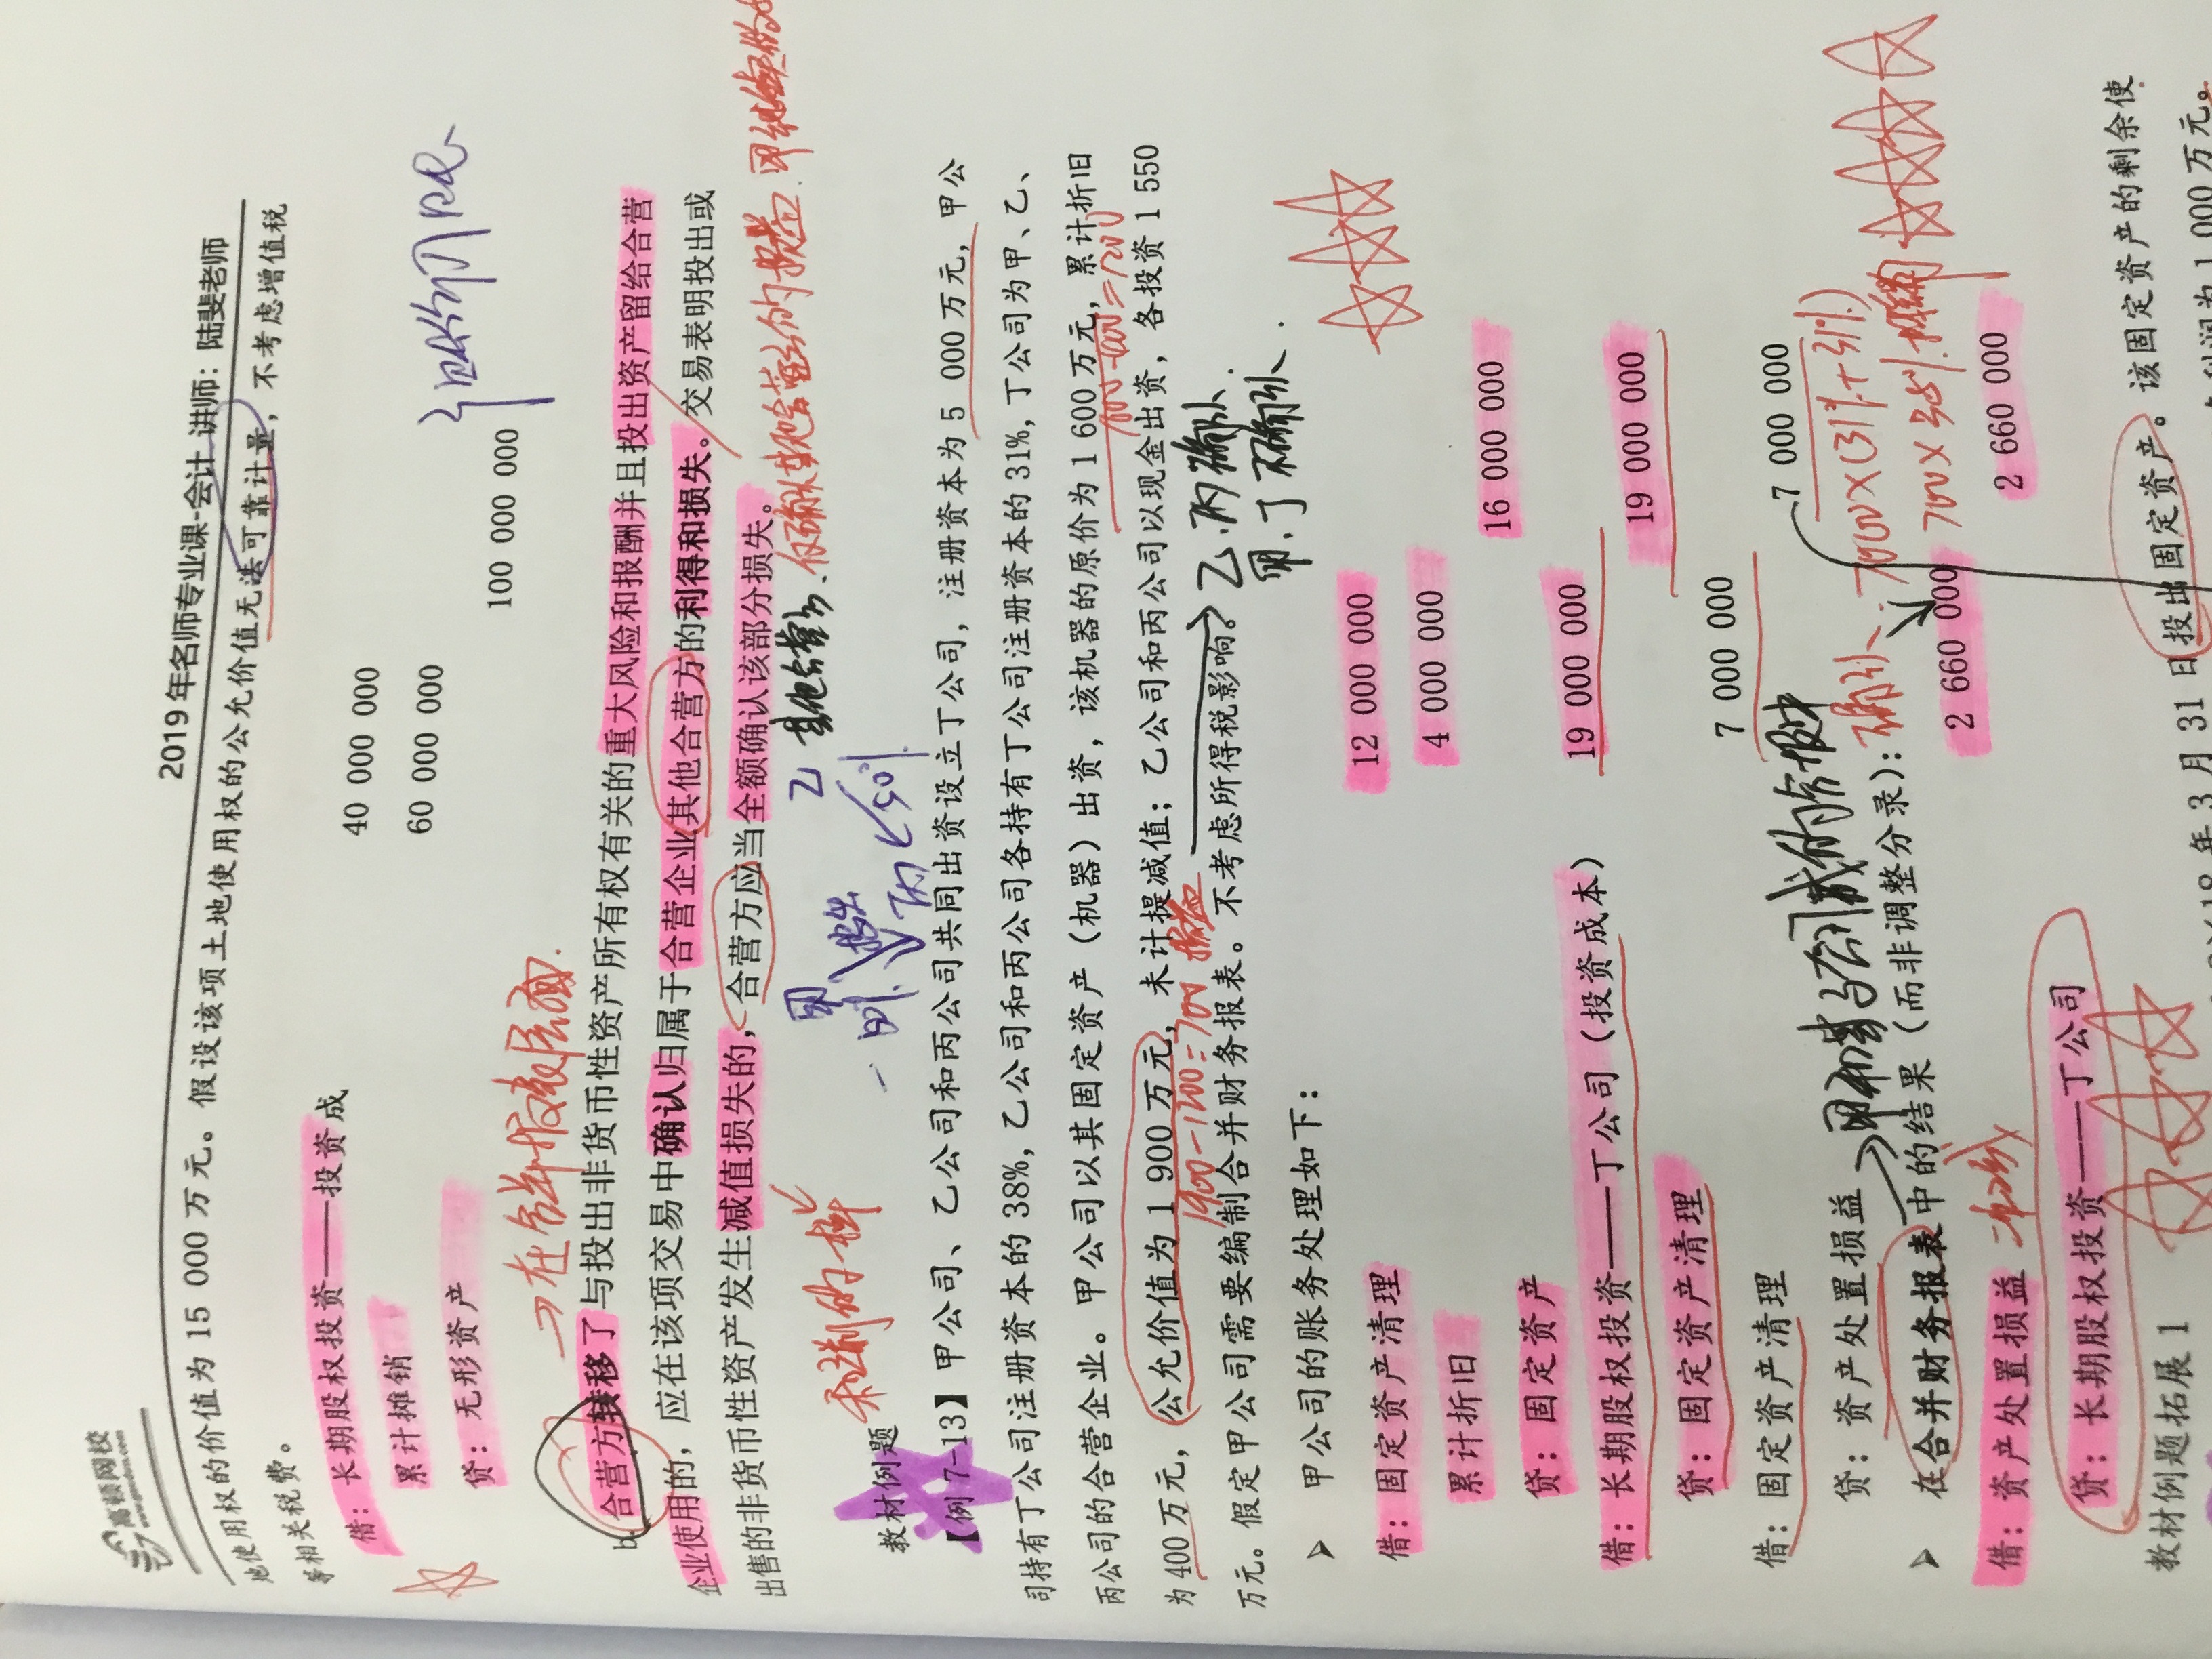 高顿网校
www.gaodun.com
2019 年名师专业课-会计 讲师：陆斐老师
地使用权的价值为 15 000 万元。假设该项土地使用权的公允价值无法可靠计量，不考虑增值税
等相关税费。
借：长期股权投资——投资成 40 000 000
累计摊销 60 000 000
贷：无形资产 100 000 000
→在合并报表层面.
b.合营方转移了与投出非货币性资产所有权有关的重大风险和报酬并且投出资产留给合营
企业使用的，应在该项交易中确认归属于合营企业其他合营方的利得和损失。交易表明投出或
出售的非货币性资产发生减值损失的，合营方应当全额确认该部分损失。
甲 乙 其他合营方、仅确认其他合营方的损益.
投出 丙 50%
教材例题
【例 7-13】甲公司、乙公司和丙公司共同出资设立丁公司，注册资本为 5 000 万元，甲公
司持有丁公司注册资本的 38%，乙公司和丙公司各持有丁公司注册资本的 31%，丁公司为甲、乙、
丙公司的合营企业。甲公司以其固定资产（机器）出资，该机器的原价为 1 600 万元，累计折旧
1600-400=1200
为 400 万元，公允价值为 1 900 万元，未计提减值；乙公司和丙公司以现金出资，各投资 1 550
1900-1200=700 损益
万元。假定甲公司需要编制合并财务报表。不考虑所得税影响。
乙、丙确认.
甲、丁不确认.
➢ 甲公司的账务处理如下：
借：固定资产清理 12 000 000
累计折旧 4 000 000
贷：固定资产 16 000 000
借：长期股权投资——丁公司（投资成本） 19 000 000
贷：固定资产清理 19 000 000
借：固定资产清理 7 000 000
贷：资产处置损益 7 000 000
甲和其子公司形成的合报中
确认
➢ 在合并财务报表中的结果（而非调整分录）：
700×38%抵销
借：资产处置损益 2 660 000
贷：长期股权投资——丁公司 2 660 000
教材例题拓展 1
年 3 月 31 日投出固定资产。该固定资产的剩余使
利润为 1 000 万元。